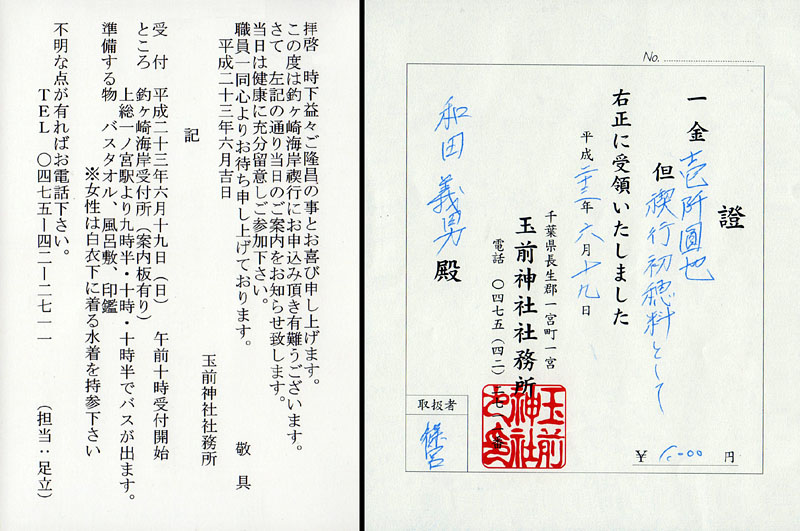 拝啓　時下益々ご隆昌の事とお喜び申し上げます。
この度は釣ヶ崎海岸禊行にお申込み頂き有難うございます。
さて　左記の通り当日のご案内をお知らせ致します。
当日は健康に充分留意しご参加下さい。
職員一同心よりお待ち申し上げております。　敬具
平成二十三年六月吉日
玉前神社社務所
記
受　付　平成二十三年六月十九日（日）　午前十時受付開始
ところ　釣ヶ崎海岸受付所（案内板有り）
上総一ノ宮駅より九時半・十時・十時半でバスが出ます。
準備する物　バスタオル、風呂敷、印鑑
※女性は白衣下に着る水着を持参下さい
不明な点が有ればお電話下さい。
ＴＥＬ　〇四七五―四二―二七一一　（担当：足立）
No.
證
一金壱阡圓也
但 禊行初穂料として
右正に受領いたしました
平成二十三年六月十九日
千葉県長生郡一宮町一宮
玉前神社社務所
電話　〇四七五（四二）二七一一番
玉前神社之印
和田義男殿
取扱者
篠宮
￥1,000円